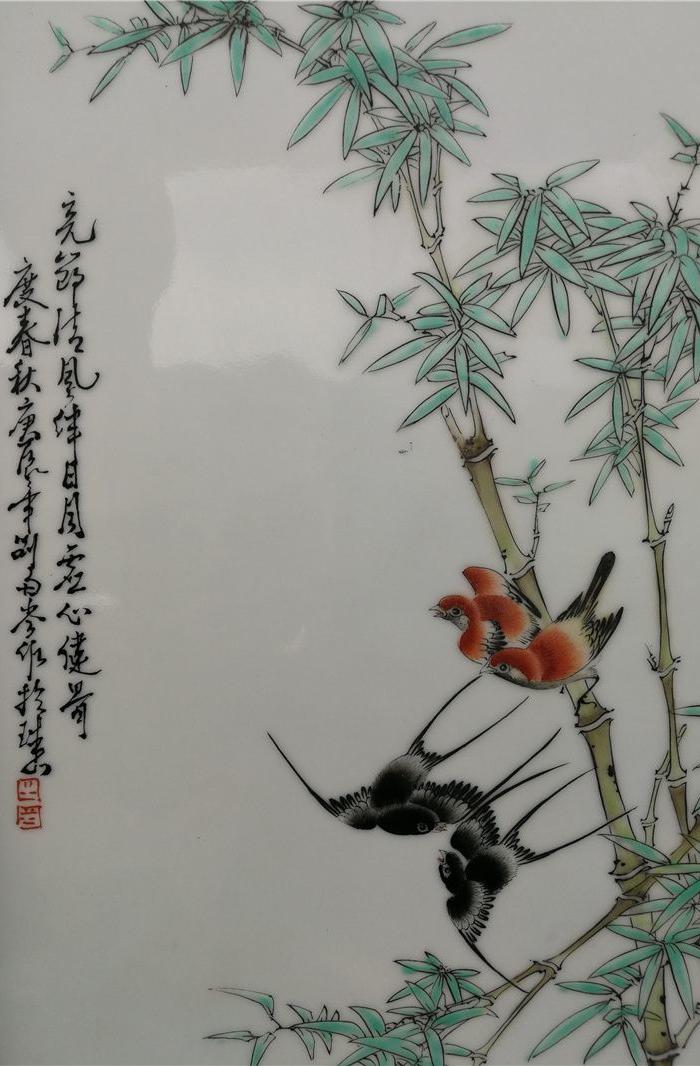 亮節清風伴日月虛心健骨
度春秋庚辰年剑雨岑作於珠山